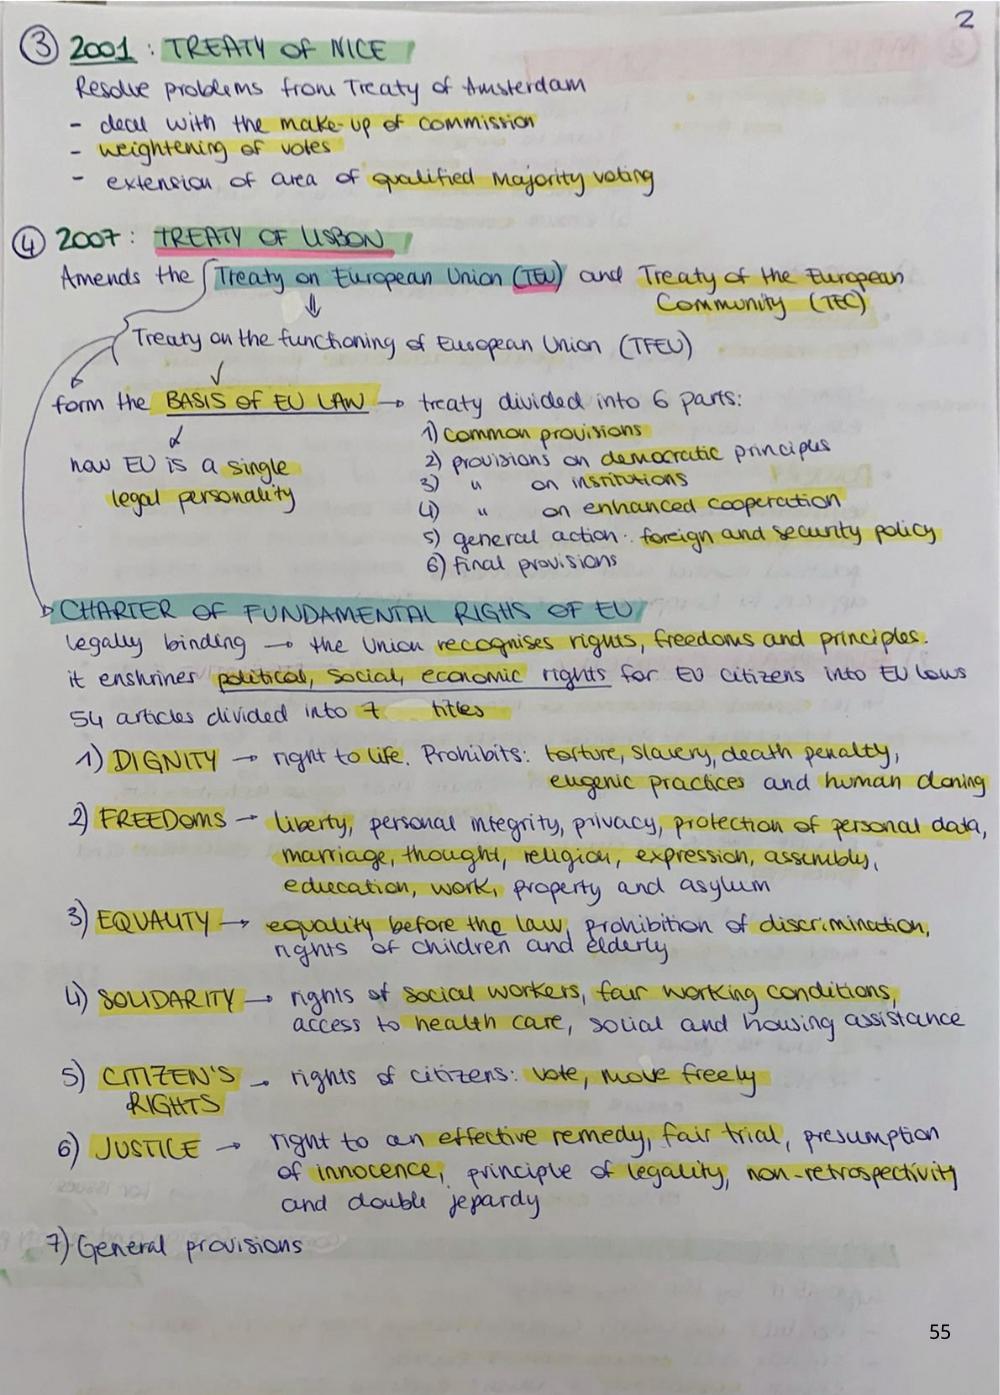 2
③ 2001 : TREATY OF NICE
Resolve problems from Treaty of Amsterdam
- deal with the make-up of commission
- weightening of votes
- extension of area of qualified majority voting
④ 2007 : TREATY OF LISBON
Amends the Treaty on European Union (TEU) and Treaty of the European
Community (TEC)
Treaty on the functioning of European Union (TFEU)
form the BASIS OF EU LAW → treaty divided into 6 parts:
1) common provisions
now EU is a single
legal personality
2) provisions on democratic principles
3) " on institutions
4) " on enhanced cooperation
5) general action : foreign and security policy
6) final provisions
CHARTER OF FUNDAMENTAL RIGHS OF EU
legally binding → the Union recognises rights, freedoms and principles.
it enshrines political, social, economic rights for EU citizens into EU laws
54 articles divided into 7 titles
1) DIGNITY → right to life. Prohibits: torture, slavery, death penalty,
eugenic practices and human cloning
2) FREEDOMS → liberty, personal integrity, privacy, protection of personal data,
marriage, thought, religion, expression, assembly,
education, work, property and asylum
3) EQUALITY → equality before the law, prohibition of discrimination,
rights of children and elderly
4) SOLIDARITY → rights of social workers, fair working conditions,
access to health care, social and housing assistance
5) CITIZEN'S → rights of citizens: vote, move freely
RIGHTS
6) JUSTICE → right to an effective remedy, fair trial, presumption
of innocence, principle of legality, non-retrospectivity
and double jepardy
7) General provisions
55